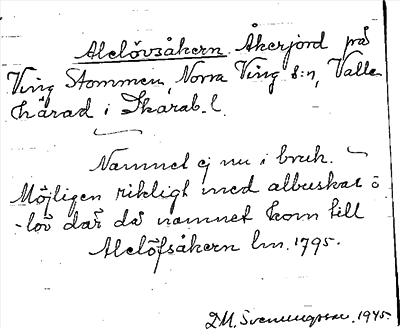 Alelövsåkern. Åkerjord på
Ving Stommen, Norra Ving s:n, Valle
härad i Skarab. l.
Namnet ej nu i bruk.
Möjligen rikligt med albuskar o
-löv där då namnet kom till
Alelöfsåkern lm. 1795.
D.M. Svenungsson. 1945.